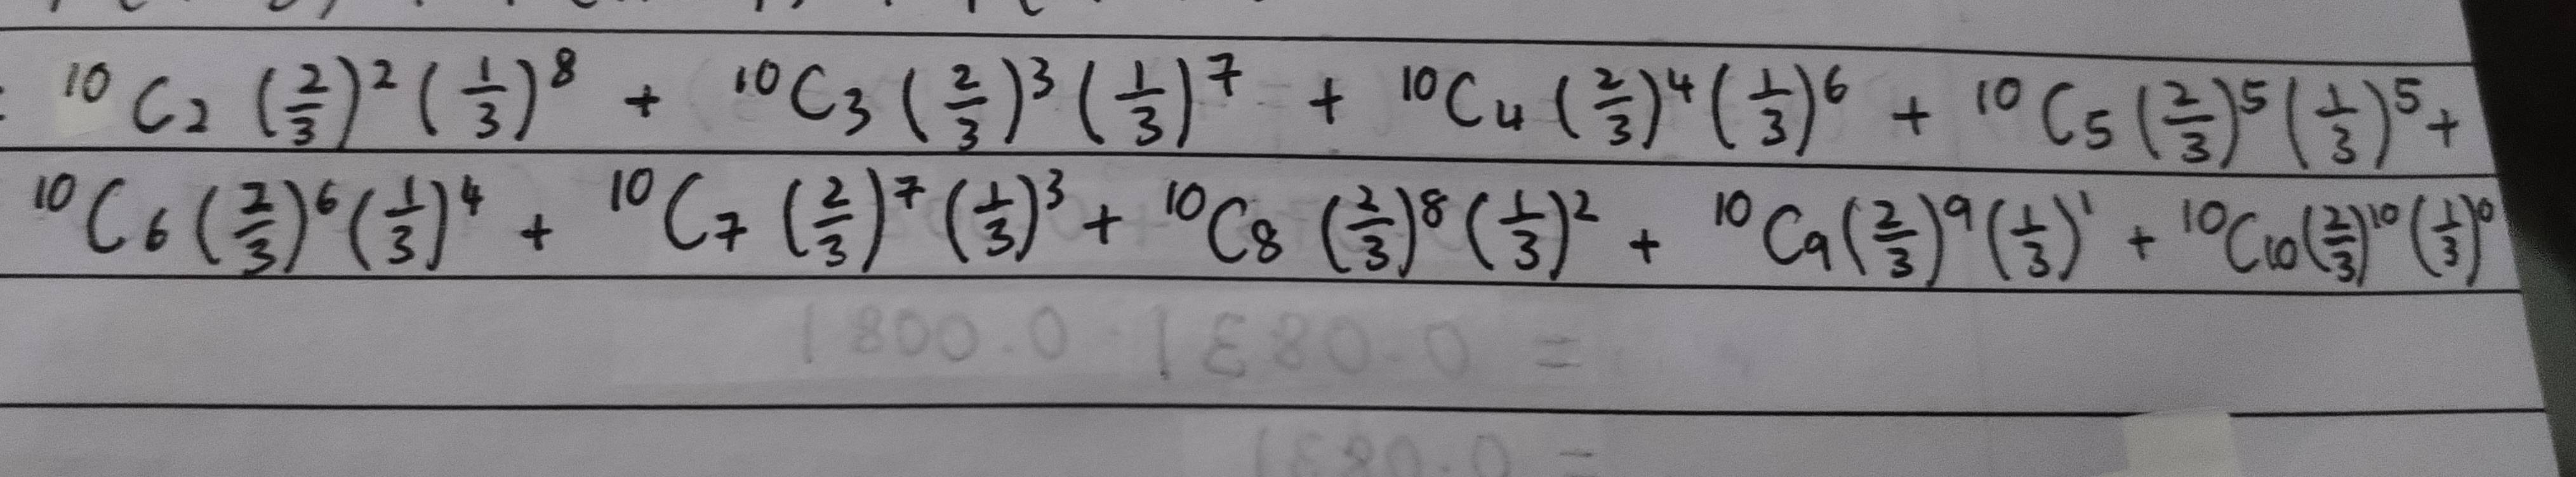 : ¹⁰C₂ (2/3)² (1/3)⁸ + ¹⁰C₃ (2/3)³ (1/3)⁷ + ¹⁰C₄ (2/3)⁴ (1/3)⁶ + ¹⁰C₅ (2/3)⁵ (1/3)⁵ +
¹⁰C₆ (2/3)⁶ (1/3)⁴ + ¹⁰C₇ (2/3)⁷ (1/3)³ + ¹⁰C₈ (2/3)⁸ (1/3)² + ¹⁰C₉ (2/3)⁹ (1/3)¹ + ¹⁰C₁₀ (2/3)¹⁰ (1/3)⁰